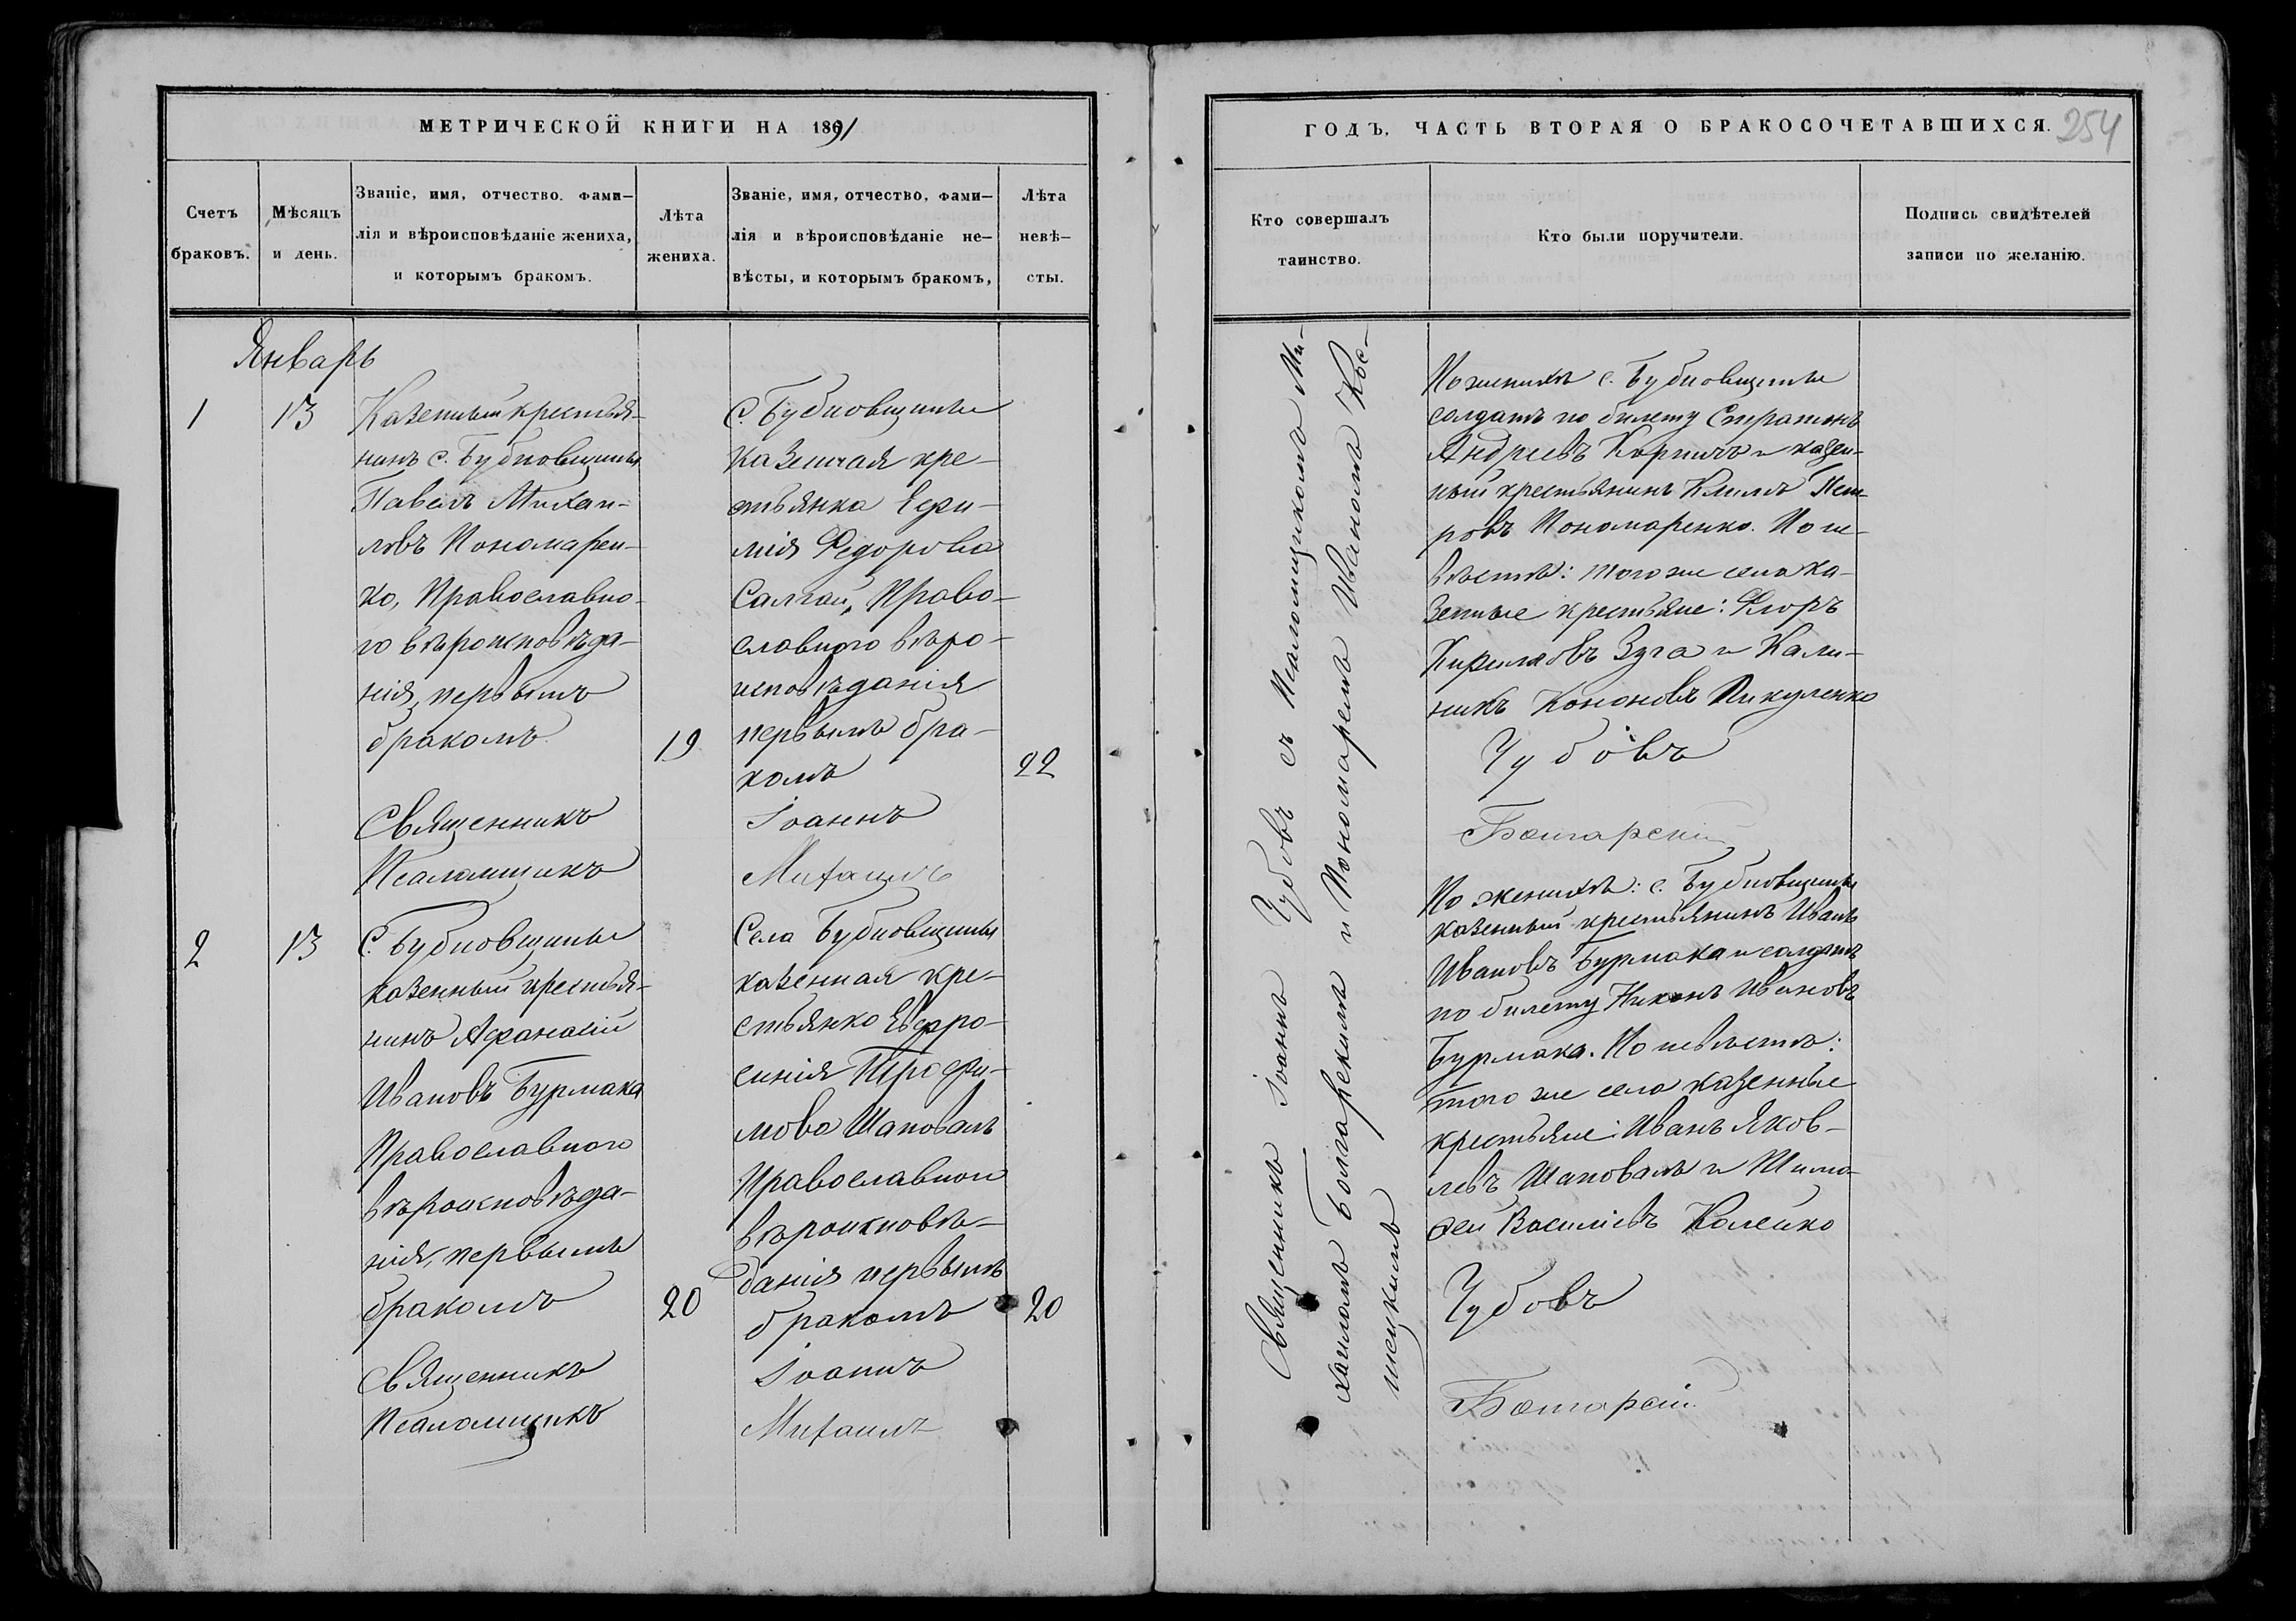 МЕТРИЧЕСКОЙ КНИГИ НА 1891
Счетъ браковъ.
Мѣсяцъ и день.
Званіе, имя, отчество. фами-
лія и вѣроисповѣданіе жениха,
и которымъ бракомъ.
Лѣта жениха.
Званіе, имя, отчество, фами-
лія и вѣроисповѣданіе не-
вѣсты, и которымъ бракомъ,
Лѣта невѣ-
сты.
Январь
1
13
Казенный крестья-
нинъ с. Бубновщины
Павелъ Михаи-
ловъ Пономарен-
ко, Православно-
го вѣроисповѣда-
нія, первымъ
бракомъ
19
С. Бубновщины
казенная кре-
стьянка Ефи-
мія Федорова
Салгай, Право-
славного вѣро-
исповѣданія
первымъ бра-
комъ
22
Священникъ
Іоаннъ
Псаломщикъ
Михаилъ
2
13
С. Бубновщины
казенный крестья-
нинъ Афанасій
Ивановъ Бурмака
Православного
вѣроисповѣда-
нія, первымъ
бракомъ
20
Села Бубновщины
казенная кре-
стьянка Евфро-
синія Трофи-
мова Шаповалъ
Православного
вѣроисповѣ-
данія первымъ
бракомъ
20
Священникъ
Іоаннъ
Псаломщикъ
Михаилъ
ГОДЪ, ЧАСТЬ ВТОРАЯ О БРАКОСОЧЕТАВШИХСЯ.
254
Кто совершалъ
таинство.
Кто были поручители.
Подпись свидѣтелей
записи по желанію.
Священникъ Іоаннъ Чубовъ съ Псаломщикомъ Ми-
хаиломъ Болгарскимъ и Пономаремъ Иваномъ Кос-
инскимъ
По женихѣ с. Бубновщины
солдатъ по билету Стратонъ
Андреевъ и казен-
ный крестьянинъ Климъ Пет-
ровъ Пономаренко. По не-
вѣстѣ: того же села ка-
зенные крестьяне: Флоръ
Кириловъ Зуга и Кали-
никъ Кононовъ Пикуленко
Чубовъ
Болгарскій
По женихѣ: с. Бубновщины
казенный крестьянинъ Иванъ
Ивановъ Бурмака и солдатъ
по билету Никонъ Ивановъ
Бурмака. По невѣстѣ:
того же села казенные
крестьяне: Иванъ Яков-
левъ Шаповалъ и Тимо-
фей Василіевъ Калейко
Чубовъ
Болгарскій